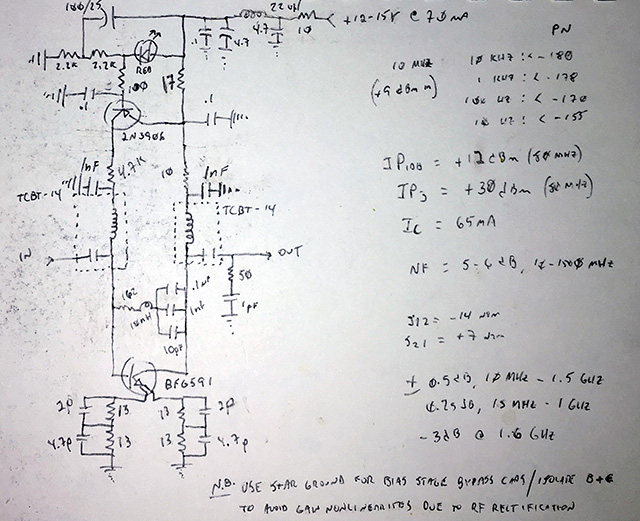 100/25
22uH
+12-15V @ 70mA
.1
4.7
4.7
10
2.2K
2.2K
RED
100
17
.1
.1
2N3906
4.7K
1nF
10
1nF
TCBT-14
TCBT-14
IN
OUT
50
1pF
162
.1uF
1nF
10pF
BFG591
2P
13
13
2P
4.7p
13
13
4.7p
PN
10 MHz
(+9 dBm in)
10 KHz : < -180
1 KHz : < -178
100 Hz : < -170
10 Hz : < -155
IP1DB = +12dBm (50 MHz)
IP3 = +30dBm (50 MHz)
Ic = 65mA
NF = 5-6 dB, 10-1500 MHz
S12 = -14 nom
S21 = +7 nom
± 0.5dB, 10 MHz - 1.5 GHz
0.25dB, 15 MHz - 1 GHz
-3dB @ 1.6 GHz
N.B. USE STAR GROUND FOR BIAS STAGE BYPASS CAPS/ISOLATE B+E
TO AVOID GAIN NONLINEARITIES DUE TO RF RECTIFICATION